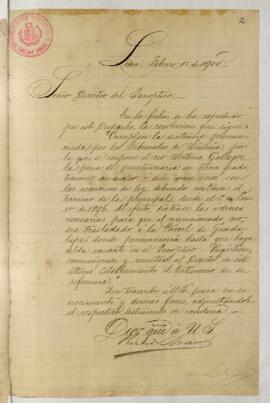 2
Lima, Febrero 1º de 1900
Señor Director del Panóptico.
En la fecha, se ha expedido
por este Despacho, la resolucion que sigue:
"Cumplase la sentencia pronun-
ciada por los Tribunales de Justicia por
la que se impone al reo Antonio Gallegos,
la pena de penitenciaria en tercer grado,
término
las accesorias de ley, debiendo contarse el
término de la principal desde el 1º de
de 1896. Al efecto, dictense las ordenes
necesarias para que el mencionado reo
sea trasladado a la Carcel de Guada-
lupe, donde permanecerá hasta que haya
celda vacante en el Panóptico. Regístrese,
comuníquese y remítase al Director de este
último Establecimiento el testimonio de su
referencia."
Que trascribo á US. para su co-
nocimiento y demas fines, adjuntándole
el respectivo testimonio de condena.
Dios gue á US.